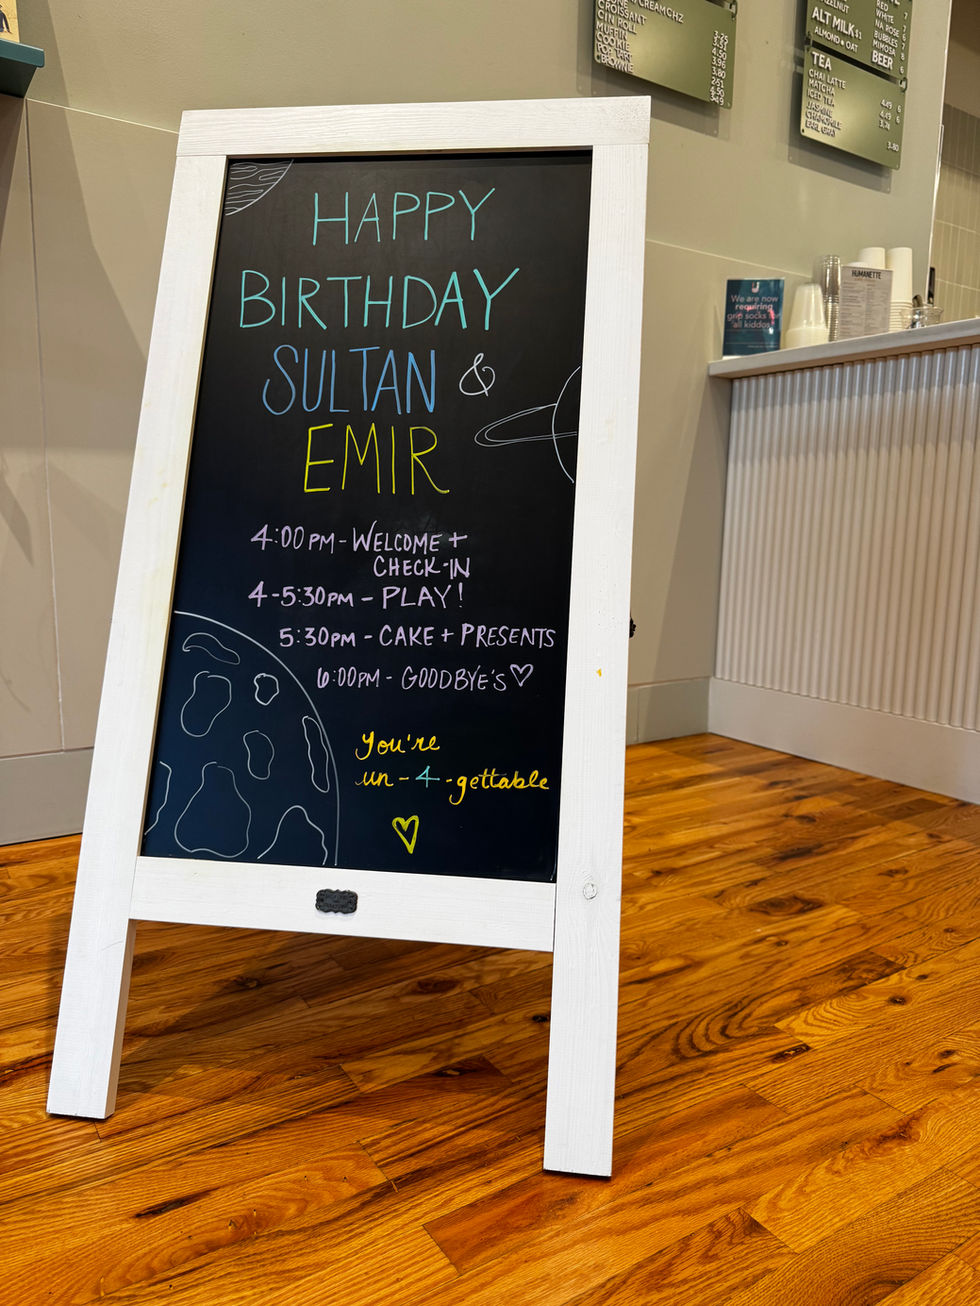 HAPPY
BIRTHDAY
SULTAN &
EMIR
4:00PM - WELCOME +
CHECK-IN
4-5:30PM - PLAY!
5:30PM - CAKE + PRESENTS
6:00PM - GOODBYE'S
You're
un-4-gettable
CROISSANT
CIN ROLL
MUFFIN
COOKIE
POP TART
BROWNIE
RED
WHITE
NA ROSE
BUBBLES
MIMOSA
BEER
ALT MILK $1
ALMOND • OAT
TEA
CHAI LATTE
MATCHA
ICED TEA
JASMINE
CHAMOMILE
EARL GRAY
3.80
We are now
requiring
grip socks for
all kiddos
HUMANETTE